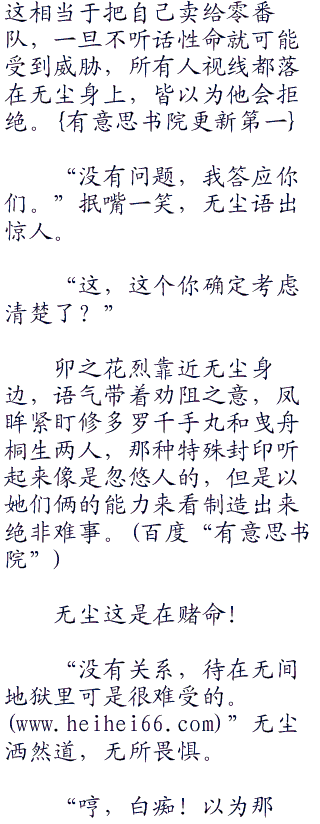 这相当于把自己卖给零番
队，一旦不听话性命就可能
受到威胁，所有人视线都落
在无尘身上，皆以为他会拒
绝。{有意思书院更新第一}
“没有问题，我答应你
们。”抿嘴一笑，无尘语出
惊人。
“这，这个你确定考虑
清楚了？”
卯之花烈靠近无尘身
边，语气带着劝阻之意，凤
眸紧盯修多罗千手丸和曳舟
桐生两人，那种特殊封印听
起来像是忽悠人的，但是以
她们俩的能力来看制造出来
绝非难事。(百度“有意思书
院”)
无尘这是在赌命！
“没有关系，待在无间
地狱里可是很难受的。
(www.heihei66.com)”无尘
洒然道，无所畏惧。
“哼，白痴！以为那